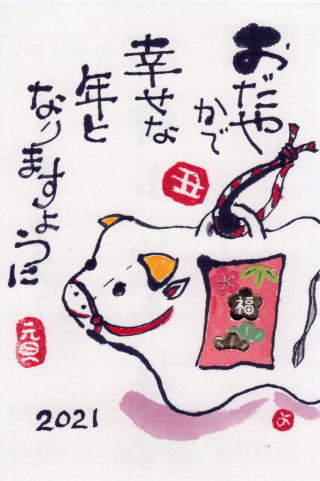 おだやかで
幸せな
年と
なりますように
丑
福
元旦
2021
よ